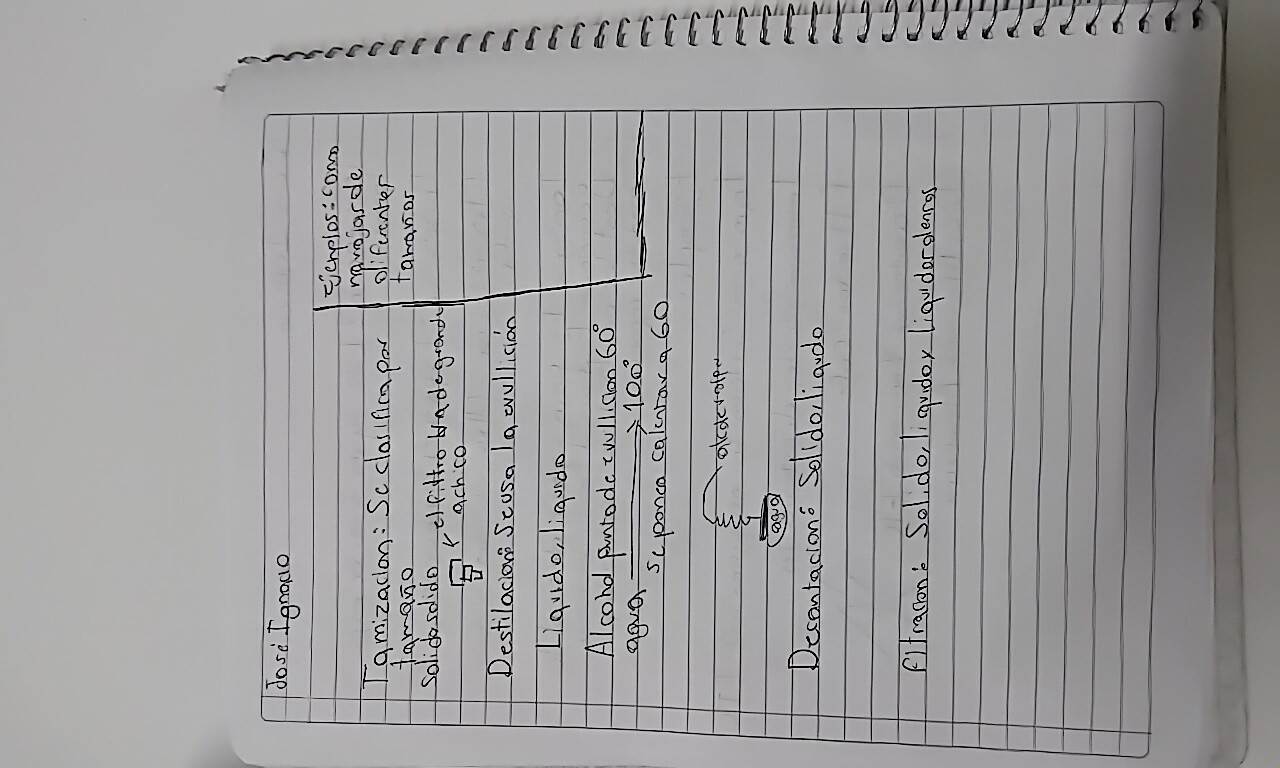 José Ignacio
Ejemplos: como
navajas de
diferentes
tamaños
Tamizacion: Se clasifica por
tamaño
solido solido
el filtro va de grande
a chico
Destilación: Se usa la evullición
Liquido, liquido
Alcohol punto de evullicion 60°
agua 100°
se ponca calentar a 60
agua
Decantacion: Solido, liquido
filtracion: Solido, liquido y liquidos densos